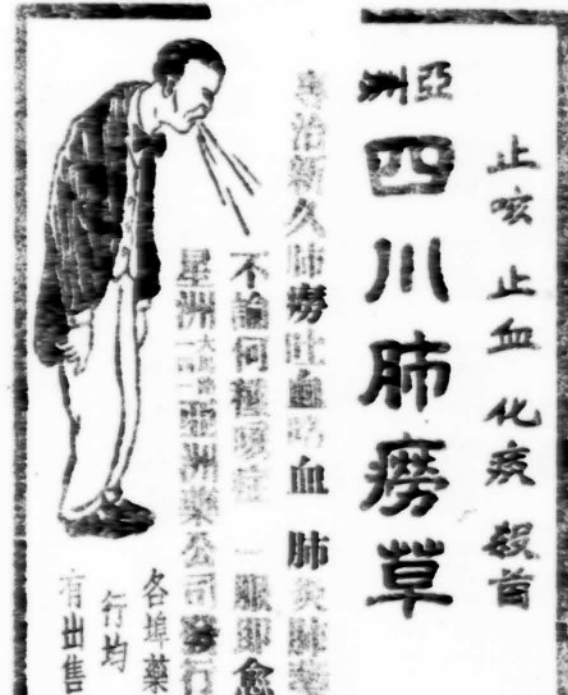 止咳 止血 化痰
亞洲
四川肺癆草
專治新久肺癆吐血咯血 肺炎肺萎
不論何種咳症 一服即愈
星洲大坡 亞洲藥公司發行
各埠藥
行均
有出售